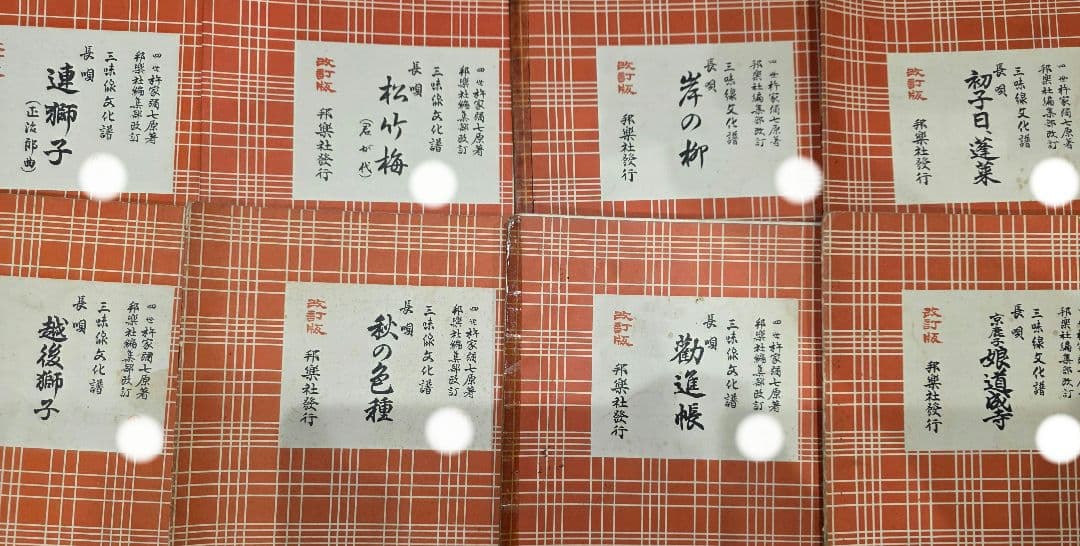 四世杵家彌七原著
邦樂社編集部改訂
三味線文化譜
長唄
連獅子
(正治郎曲)
四世杵家彌七原著
邦樂社編集部改訂
三味線文化譜
長唄
松竹梅
(君が代)
改訂版
邦樂社發行
四世杵家彌七原著
邦樂社編集部改訂
三味線文化譜
長唄
岸の柳
改訂版
邦樂社發行
四世杵家彌七原著
邦樂社編集部改訂
三味線文化譜
長唄
初子日、蓬莱
改訂版
邦樂社發行
四世杵家彌七原著
邦樂社編集部改訂
三味線文化譜
長唄
越後獅子
四世杵家彌七原著
邦樂社編集部改訂
三味線文化譜
長唄
秋の色種
改訂版
邦樂社發行
四世杵家彌七原著
邦樂社編集部改訂
三味線文化譜
長唄
勸進帳
改訂版
邦樂社發行
邦樂社編集部改訂
三味線文化譜
長唄
京鹿子娘道成寺
改訂版
邦樂社發行